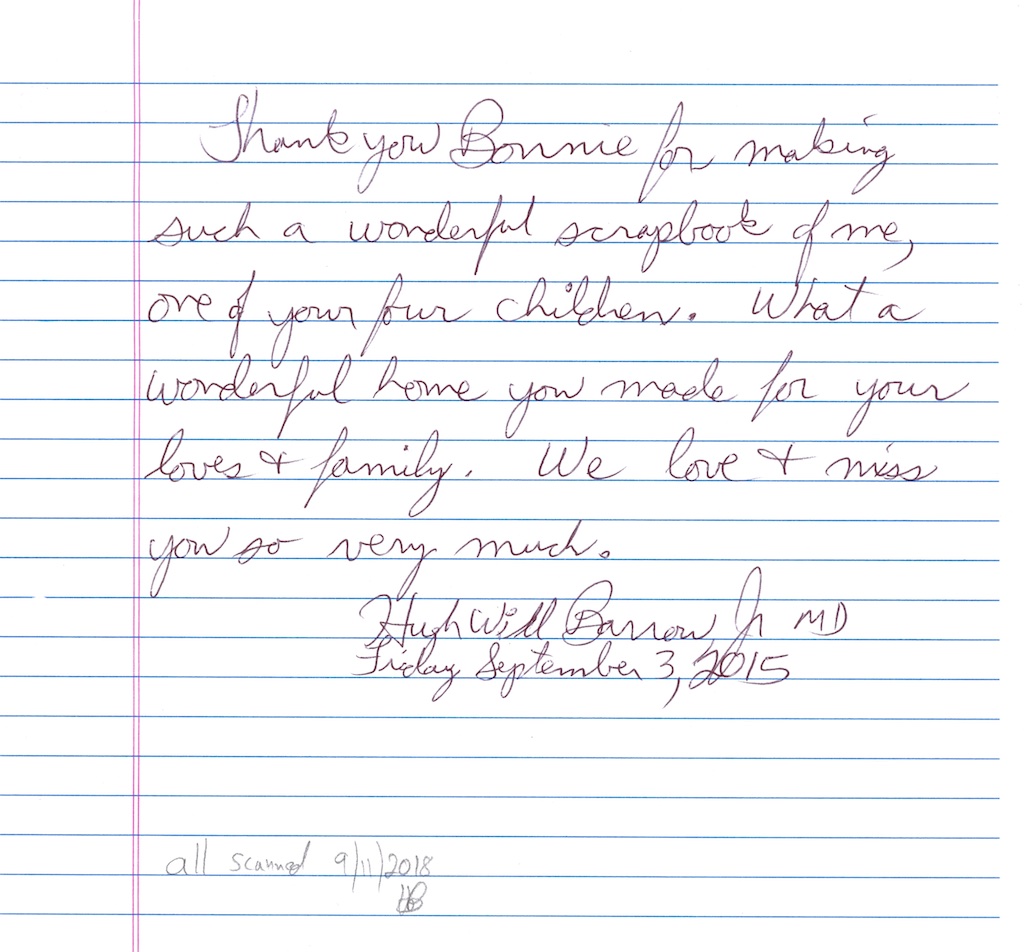 Thank you Bonnie for making
such a wonderful scrapbook of me,
one of your four children. What a
wonderful home you made for your
loves & family. We love & miss
you so very much.
Hugh Will Barrow, Jr MD
Friday September 3, 2015
all scanned 9/11/2018
HB